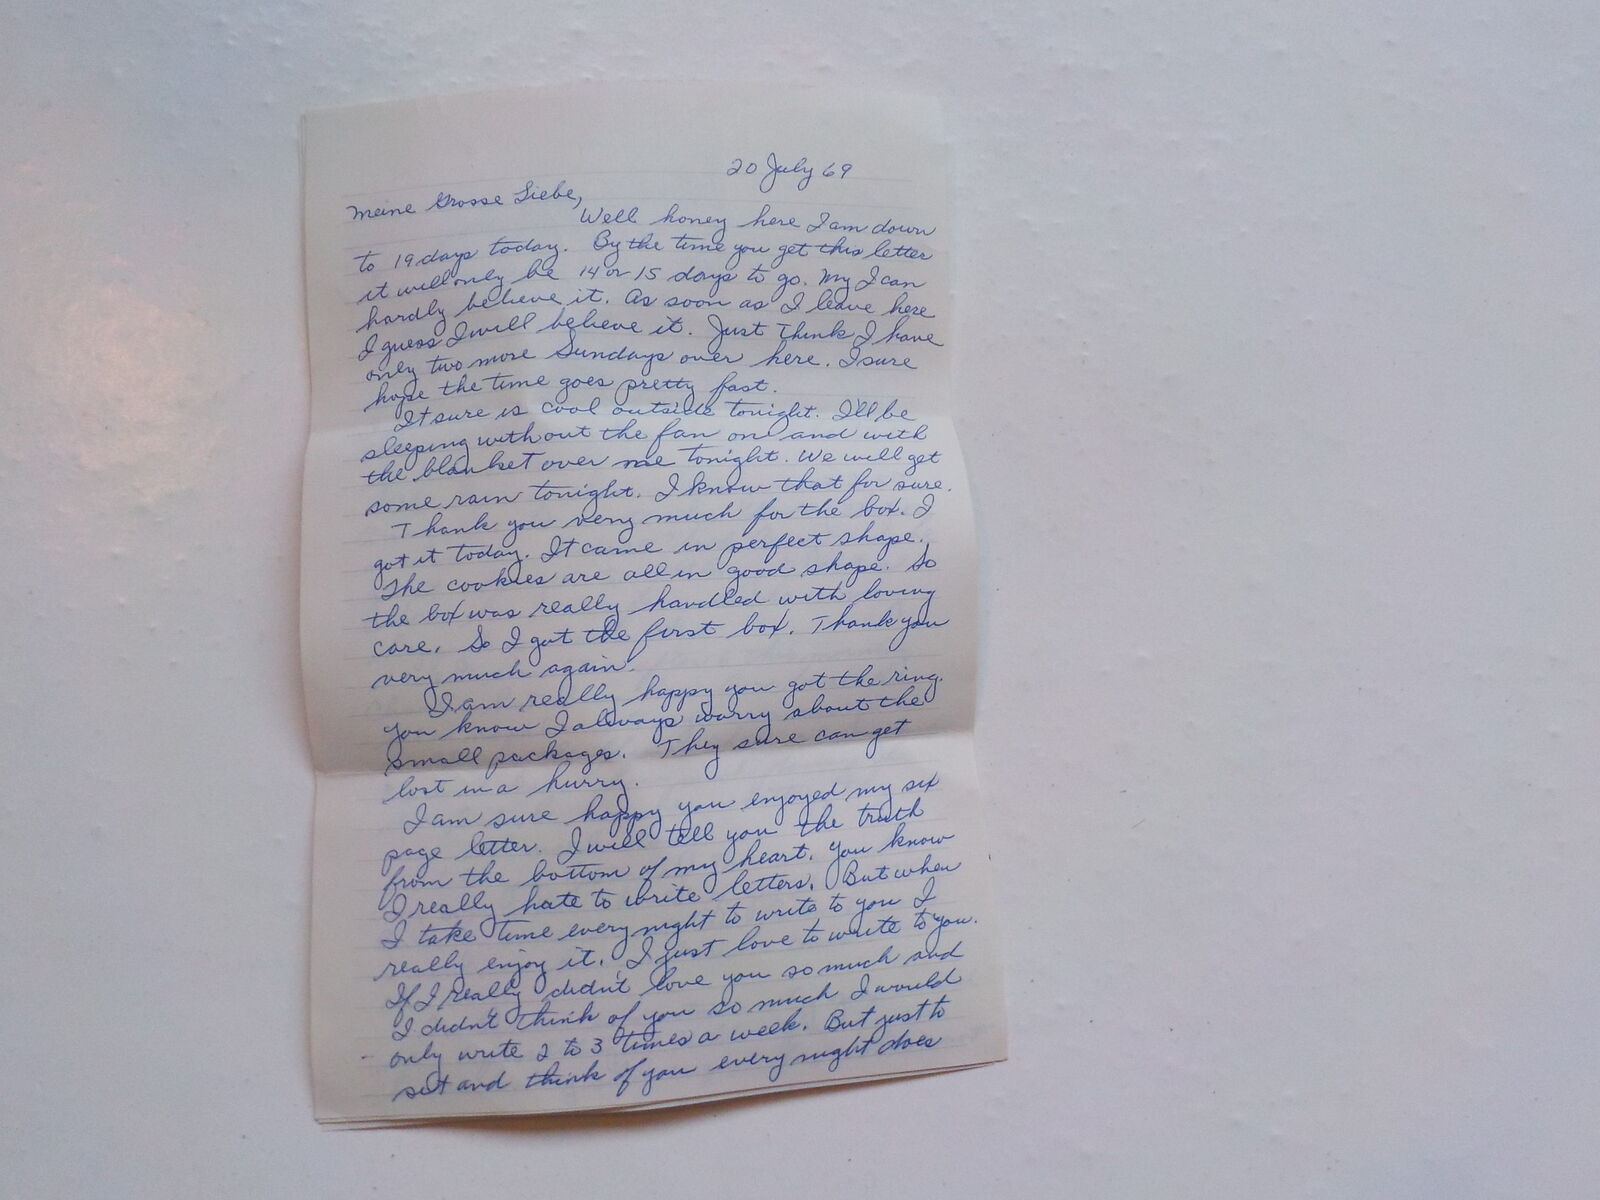 20 July 69
Meine Grosse Liebe,
Well honey here I am down
to 19 days today. By the time you get this letter
it will only be 14 or 15 days to go. My I can
hardly believe it. As soon as I leave here
I guess I will believe it. Just think I have
only two more Sundays over here. I sure
hope the time goes pretty fast.
It sure is cool outside tonight. I'll be
sleeping without the fan on and with
the blanket over me tonight. We will get
some rain tonight. I know that for sure.
Thank you very much for the box. I
got it today. It came in perfect shape.
The cookies are all in good shape. So
the box was really handled with loving
care. So I got the first box. Thank you
very much again.
I am really happy you got the ring.
You know I always worry about the
small packages. They sure can get
lost in a hurry.
I am sure happy you enjoyed my six
page letter. I will tell you the truth
from the bottom of my heart. You know
I really hate to write letters. But when
I take time every night to write to you I
really enjoy it. I just love to write to you.
If I really didn't love you so much and
I didn't think of you so much I would
only write 2 to 3 times a week. But just to
sit and think of you every night does